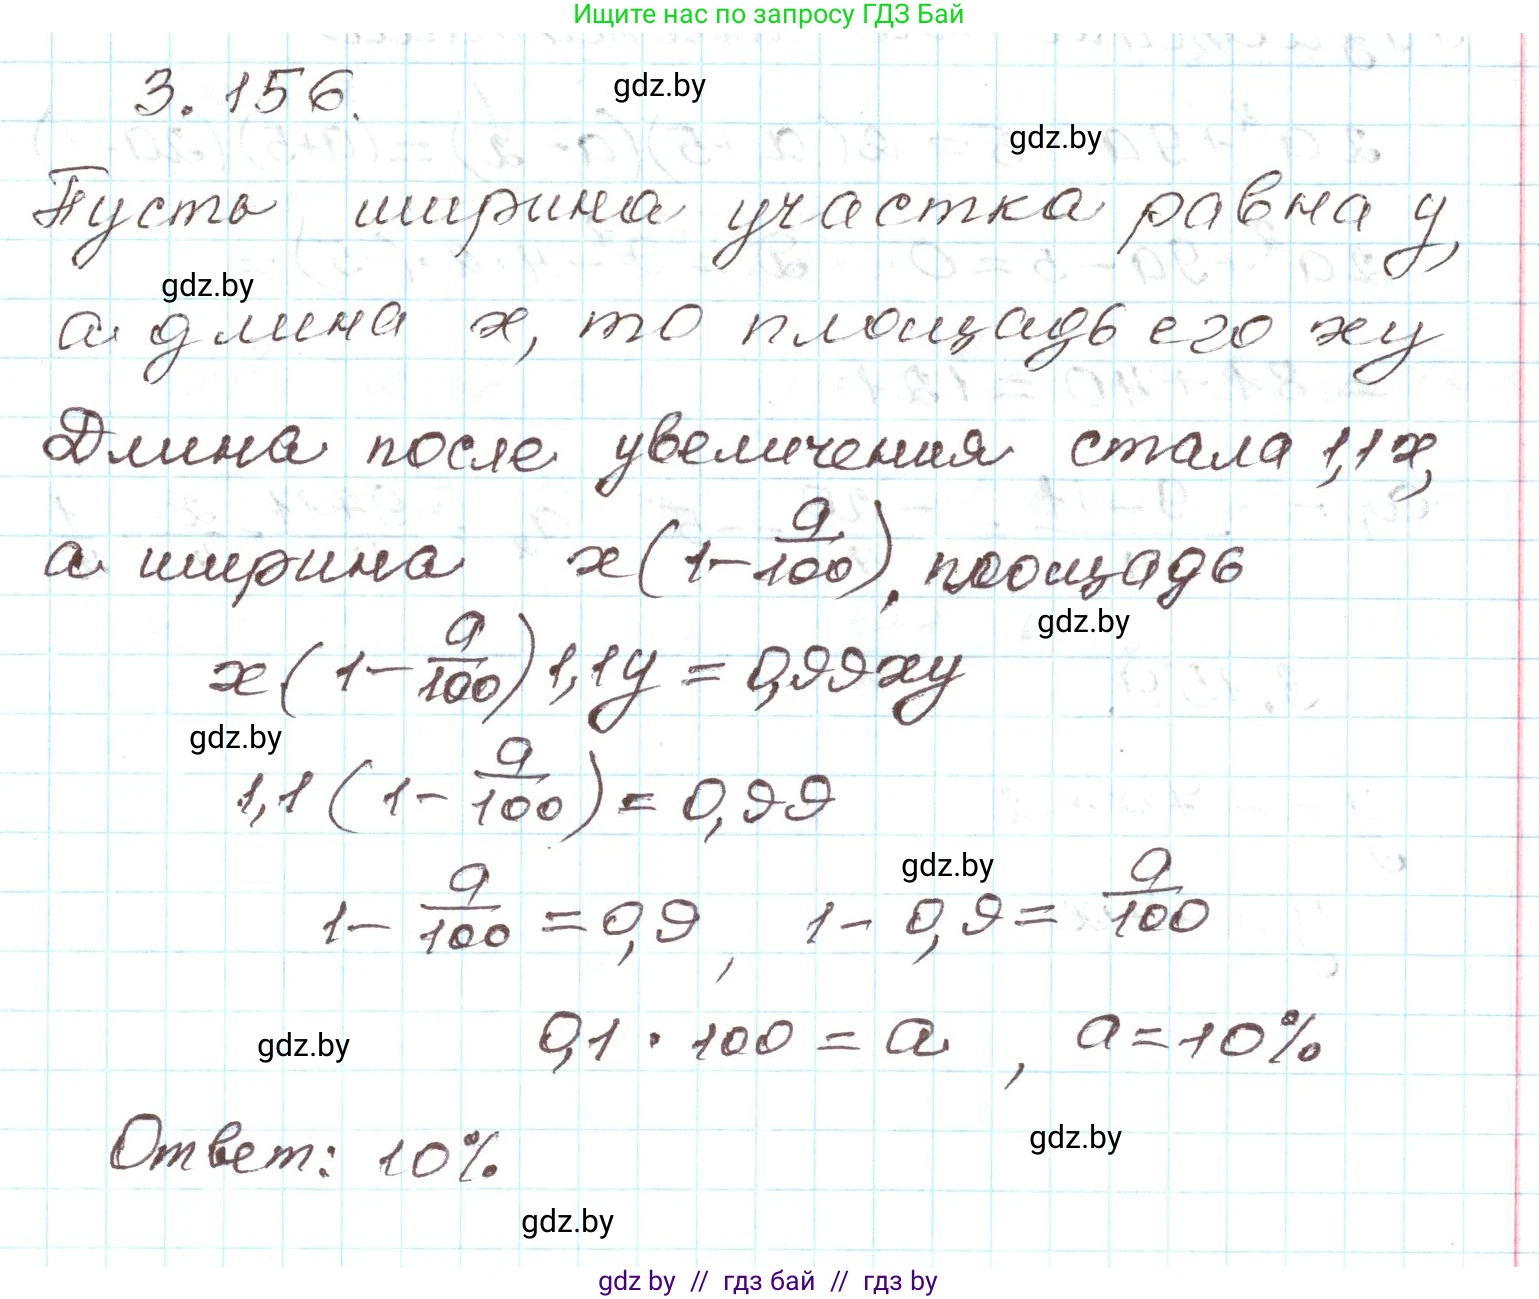 Ищите нас по запросу ГДЗ Бай
3.156.
gdz.by
gdz.by
Пусть ширина участка равна y,
gdz.by
а длина x, то площадь его xy
Длина после увеличения стала 1,1x,
а ширина x(1-a/100), площадь
gdz.by
x(1-a/100)1,1y = 0,99xy
gdz.by
1,1(1-a/100) = 0,99
gdz.by
1-a/100 = 0,9, 1-0,9 = a/100
gdz.by
0,1 · 100 = a, a = 10%
gdz.by
Ответ: 10%
gdz.by
gdz by // гдз бай // gdz by